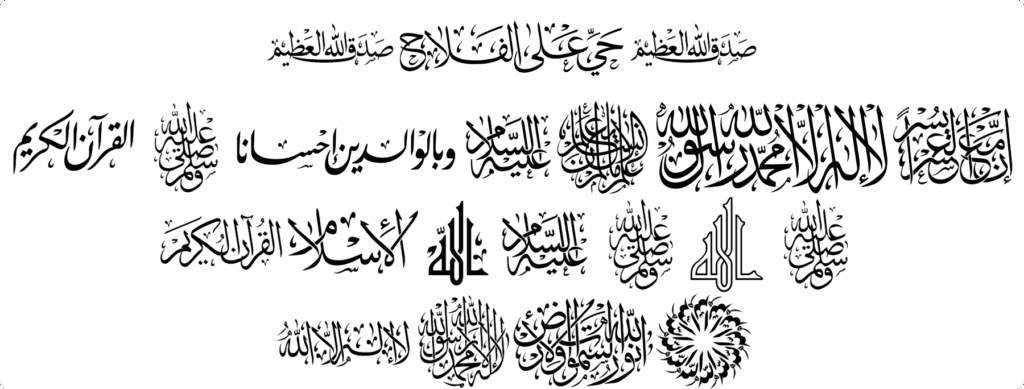 صدق الله العظيم حي على الفلاح صدق الله العظيم
إن مع العسر يسراً لا إله إلا الله محمد رسول الله علم الإنسان ما لم يعلم عليه السلام وبالوالدين احسانا صلى الله عليه وسلم القرآن الكريم
صلى الله عليه وسلم الله صلى الله عليه وسلم عليه السلام الله الإسلام القرآن الكريم
الله نور السموات والأرض لا إله إلا الله محمد رسول الله لا إله إلا الله